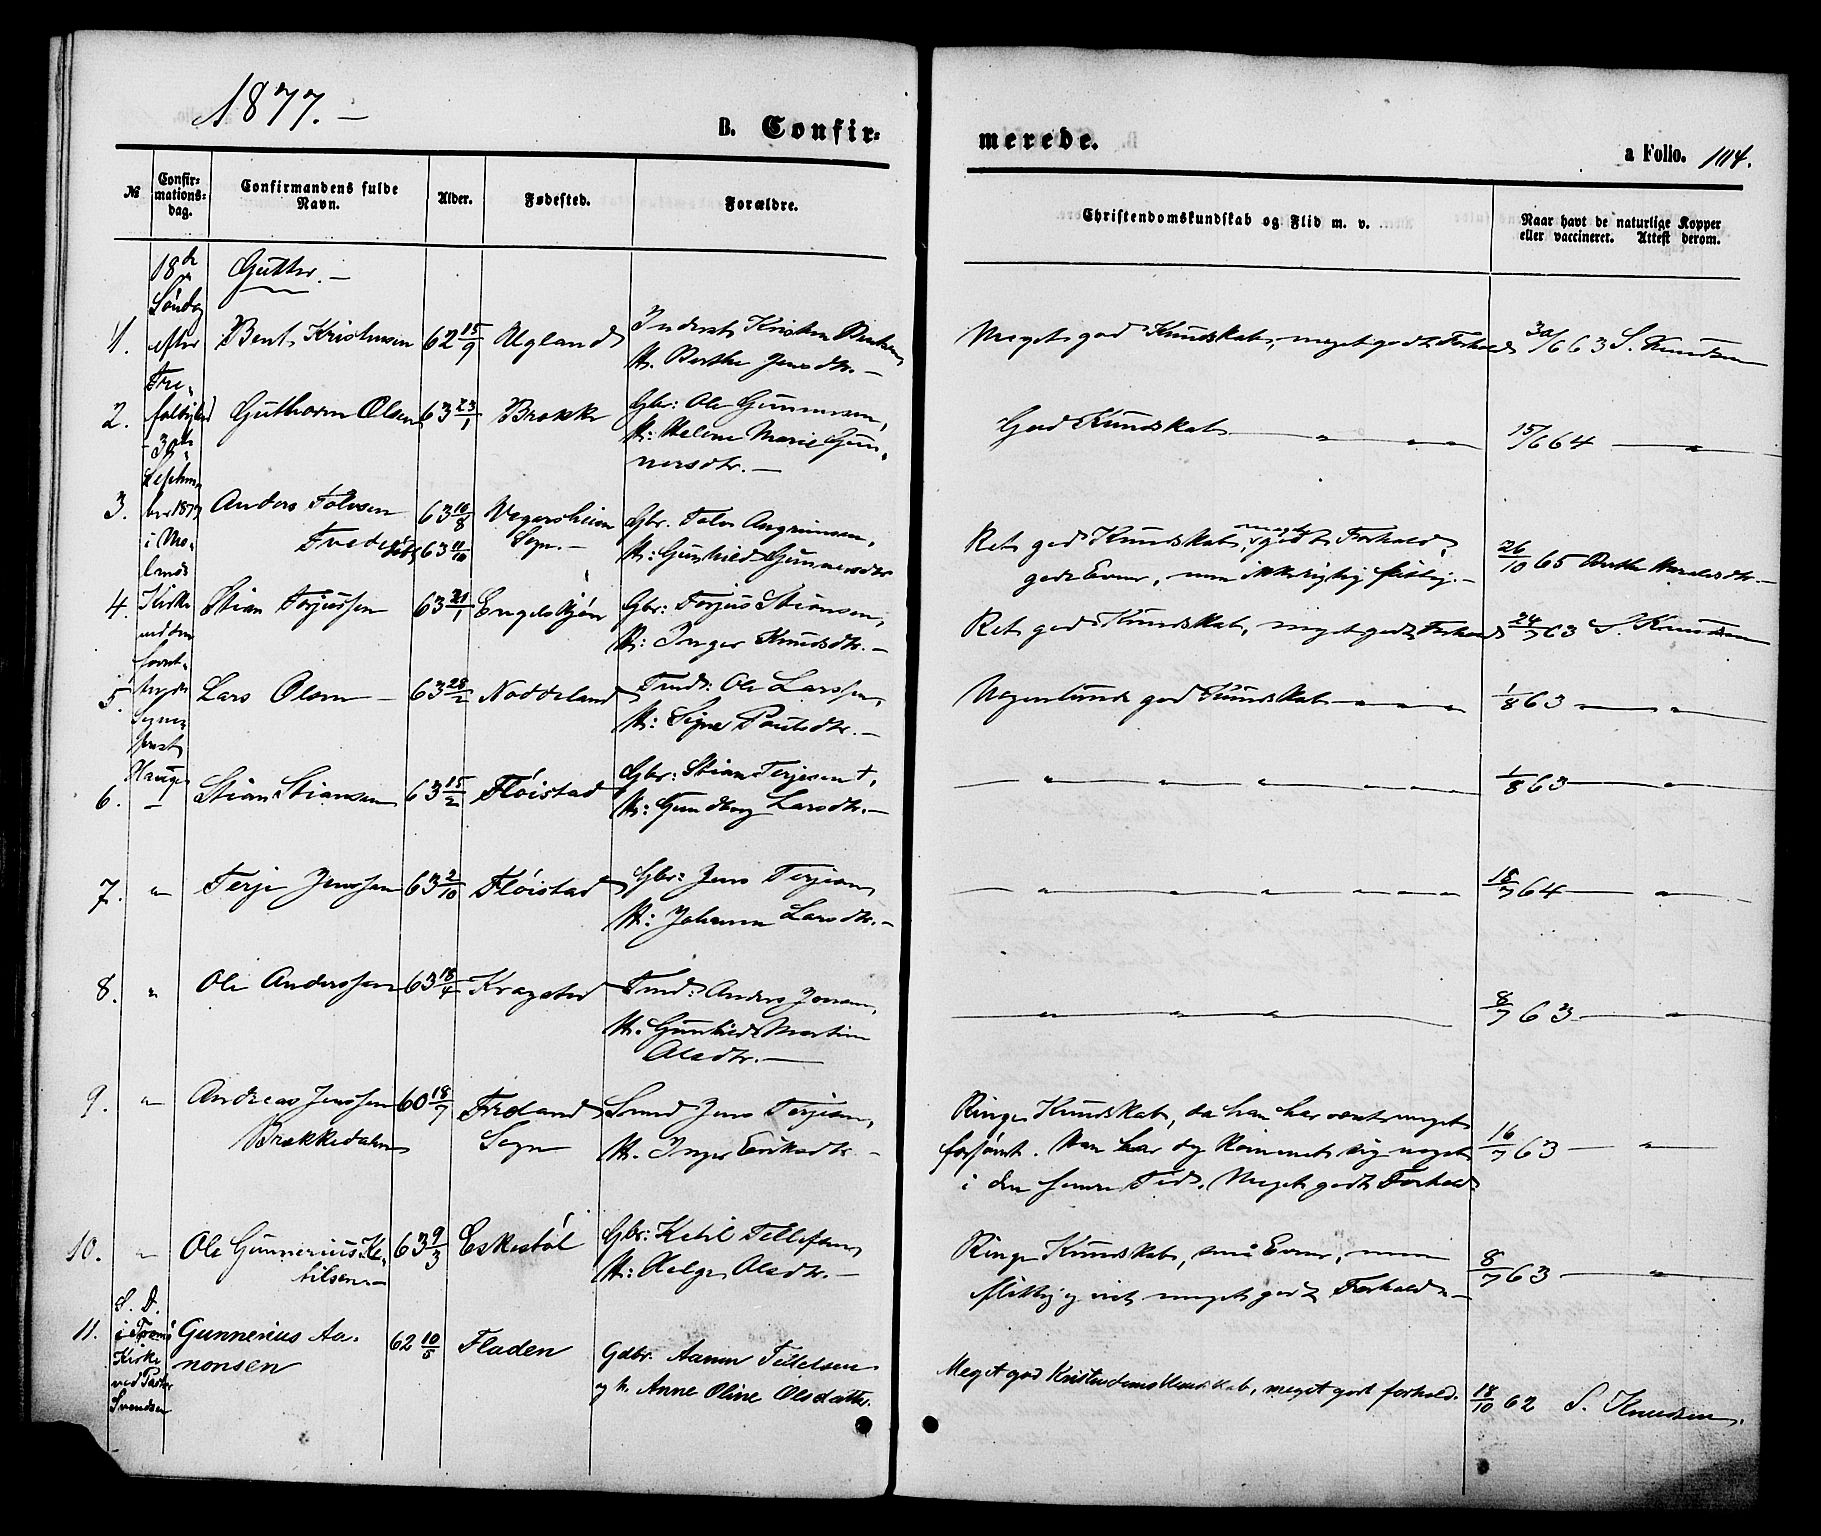 1877. —
B. Confir=
merede.
a Folio. 104.
№
Confir=
mations=
dag.
Confirmandens fulde
Navn.
Alder.
Fødested.
Forældre.
Christendomskundskab og Flid m. v.
Naar havt de naturlige Kopper
eller vaccineret. Attest derom.
18de
Søndag
efter
Tre=
foldighed
30te
Septem
ber 1877
i Mo=
lands
Kirke
Gutter. —
1. Bent Kristensen 62 15/9 Ugland
Kristen Bentsen
H. Berthe Jensdtr. —
Meget god Kundskab, meget godt Forhold 30/6 63 S. Knudsen
2. Guthorm Olsen 63 23/1 Brække
Gbr: Ole Gunnersen,
H: Helene Marie Gun=
nersdtr. —
God Kundskab — " — " — " 15/6 64 — " —
3. Anders Tolvsen 63 10/8 Vegersheien
Sogn. —
63 11/10
Gbr. Tolv Angrimsen,
H: Gunhild Gunnersdtr
Ret god Kundskab, meget godt Forhold,
gode Evner, men ikke rigtig flittig. —
26/10 65
4. Stian Terjussen 63 21/1 Engelskjøn
Gbr: Terjus Stiansen,
H: Inger Knudsdtr. —
Ret god Kundskab, meget godt Forhold 24/7 63 S. Knudsen
5. Lars Olsen — 63 28/2 Nødeland
Ole Larssen,
H: Signe Poulsdtr. —
Nogenlunde god Kundskab — " — " — " 1/8 63 — " — "
6. Stian Stiansen 63 15/2 Fløistad
Gbr: Stian Terjesen †,
H: Gundborg Larsdtr. —
— " — " — " — " — " 1/8 63 — "
7. " Terje Jenssen 63 2/10 Fløistad
Gbr: Jens Terjesen
H: Johanne Larsdtr. —
— " — " — " — " — " 18/7 64 — "
8. " Ole Anderssen 63 18/4 Kragstø
Anders Jensen,
H. Gunhild Martine
Olsdtr. —
— " — " — " 8/7 63 — "
9. " Andreas Jenssen 60 18/7 Froland
Brækkedalen
Sogn
Jens Terjesen,
H. Inger Eriksdtr. —
Ringe Kundskab, da han har været meget
forsømt. Han har dog kommet sig noget
i den senere Tid. Meget godt Forhold
16/7 63 — "
10. " Ole Gunnerius Ke=
tilsen. —
63 9/3 Eskestøl
Gbr: Ketil Tellefsen
H: Helge Olsdtr. —
Ringe Kundskab, små Evner, men
flittig og vist meget godt Forhold. —
8/7 63 — "
11. S. D.
i Tromø
Kirke
ved Pastor
Svendsen
Gunnerius Aa=
nonsen
62 10/5 Fladen
Gdbr. Aanon Tellefsen
og h. Anne Oline Olsdatter.
Meget god Kristendomskundskab, meget godt forhold. 18/10 62 S. Knudsen.